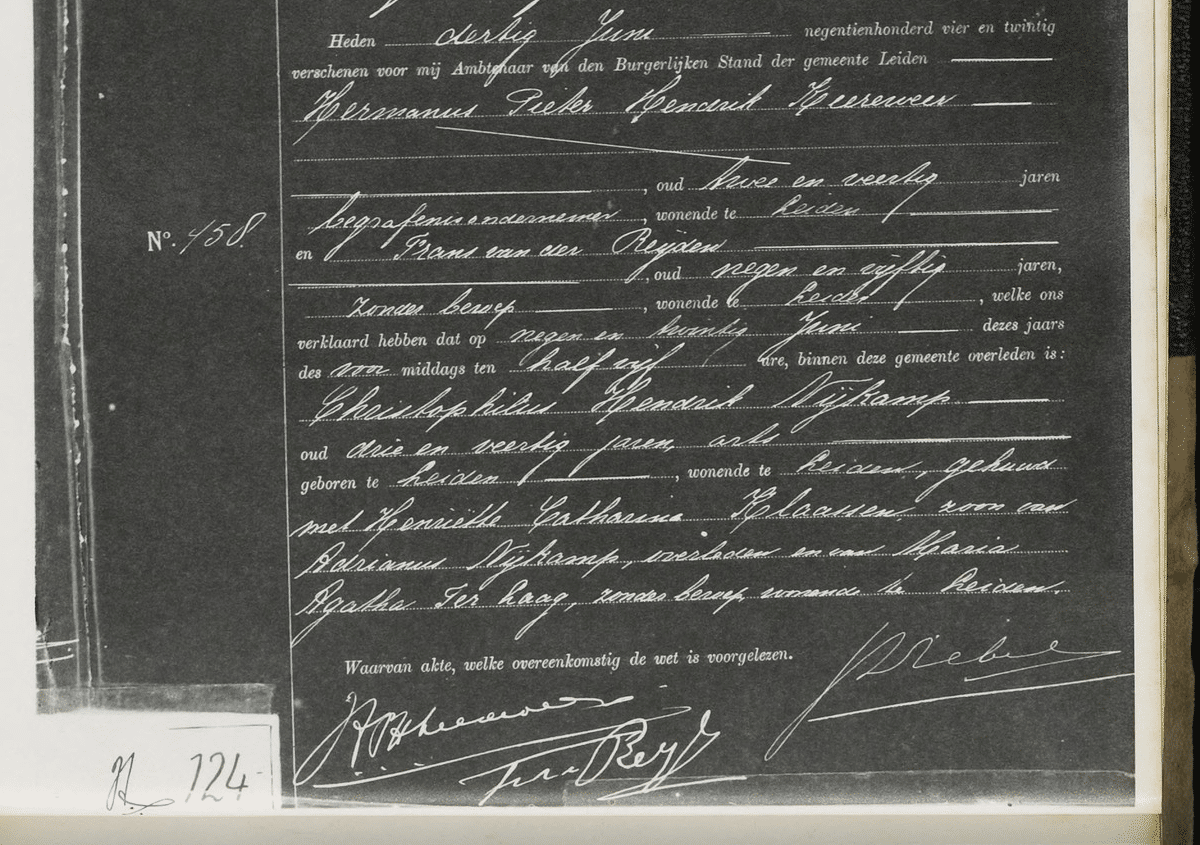 Heden dertig Juni negentienhonderd vier en twintig
verschenen voor mij Ambtenaar van den Burgerlijken Stand der gemeente Leiden
Hermanus Pieter Hendrik Heereweer
, oud twee en veertig jaren
begrafenisondernemer, wonende te Leiden
No. 458.
en Frans van der Reijden
, oud negen en vijftig jaren,
zonder beroep, wonende te Leiden, welke ons
verklaard hebben dat op negen en twintig Juni dezes jaars
des voor middags ten half vijf ure, binnen deze gemeente overleden is:
Christophilus Hendrik Nijkamp
oud drie en veertig jaren, arts
geboren te Leiden, wonende te Leiden, gehuwd
met Henriëtte Catharina Klaassen, zoon van
Adrianus Nijkamp, overleden en van Maria
Agatha Ter Laag, zonder beroep, wonende te Leiden.
Waarvan akte, welke overeenkomstig de wet is voorgelezen.
124